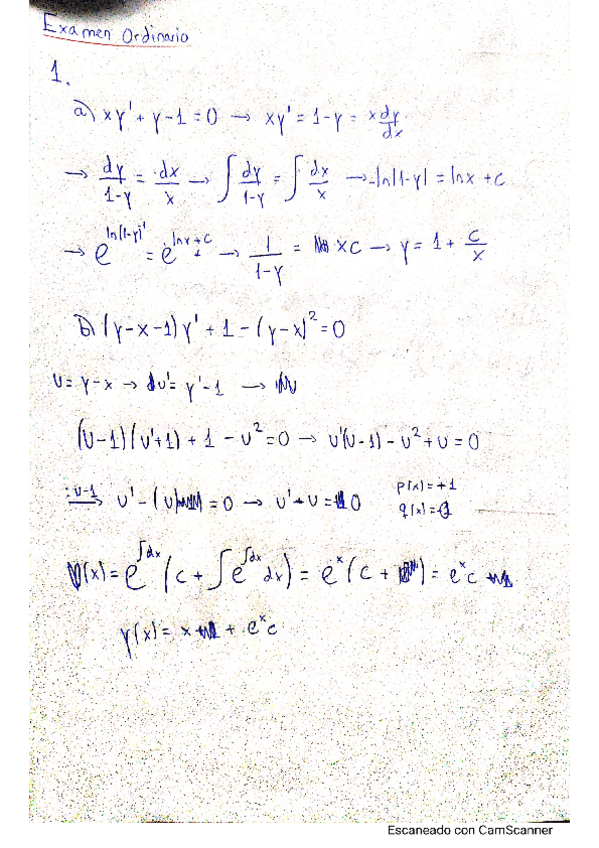 Examen Ordinario
1.
a) xy' + y - 1 = 0 → xy' = 1 - y = x dy/dx
→ dy/(1-y) = dx/x → ∫ dy/(1-y) = ∫ dx/x → -ln|1-y| = lnx + c
→ e^(ln|1-y|^1) = e^(lnx + c) → 1/(1-y) = xc → y = 1 + c/x
b) (y-x-1)y' + 1 - (y-x)^2 = 0
u = y - x → u' = y' - 1 →
(u-1)(u'+1) + 1 - u^2 = 0 → u'(u-1) - u^2 + u = 0
:u-1 → u' - (u) = 0 → u' - u = 0 p(x) = +1
q(x) = 0
(x) = e^(∫dx) (c + ∫e^(∫dx) dx) = e^x (c + ) = e^x c
y(x) = x + e^x c
Escaneado con CamScanner